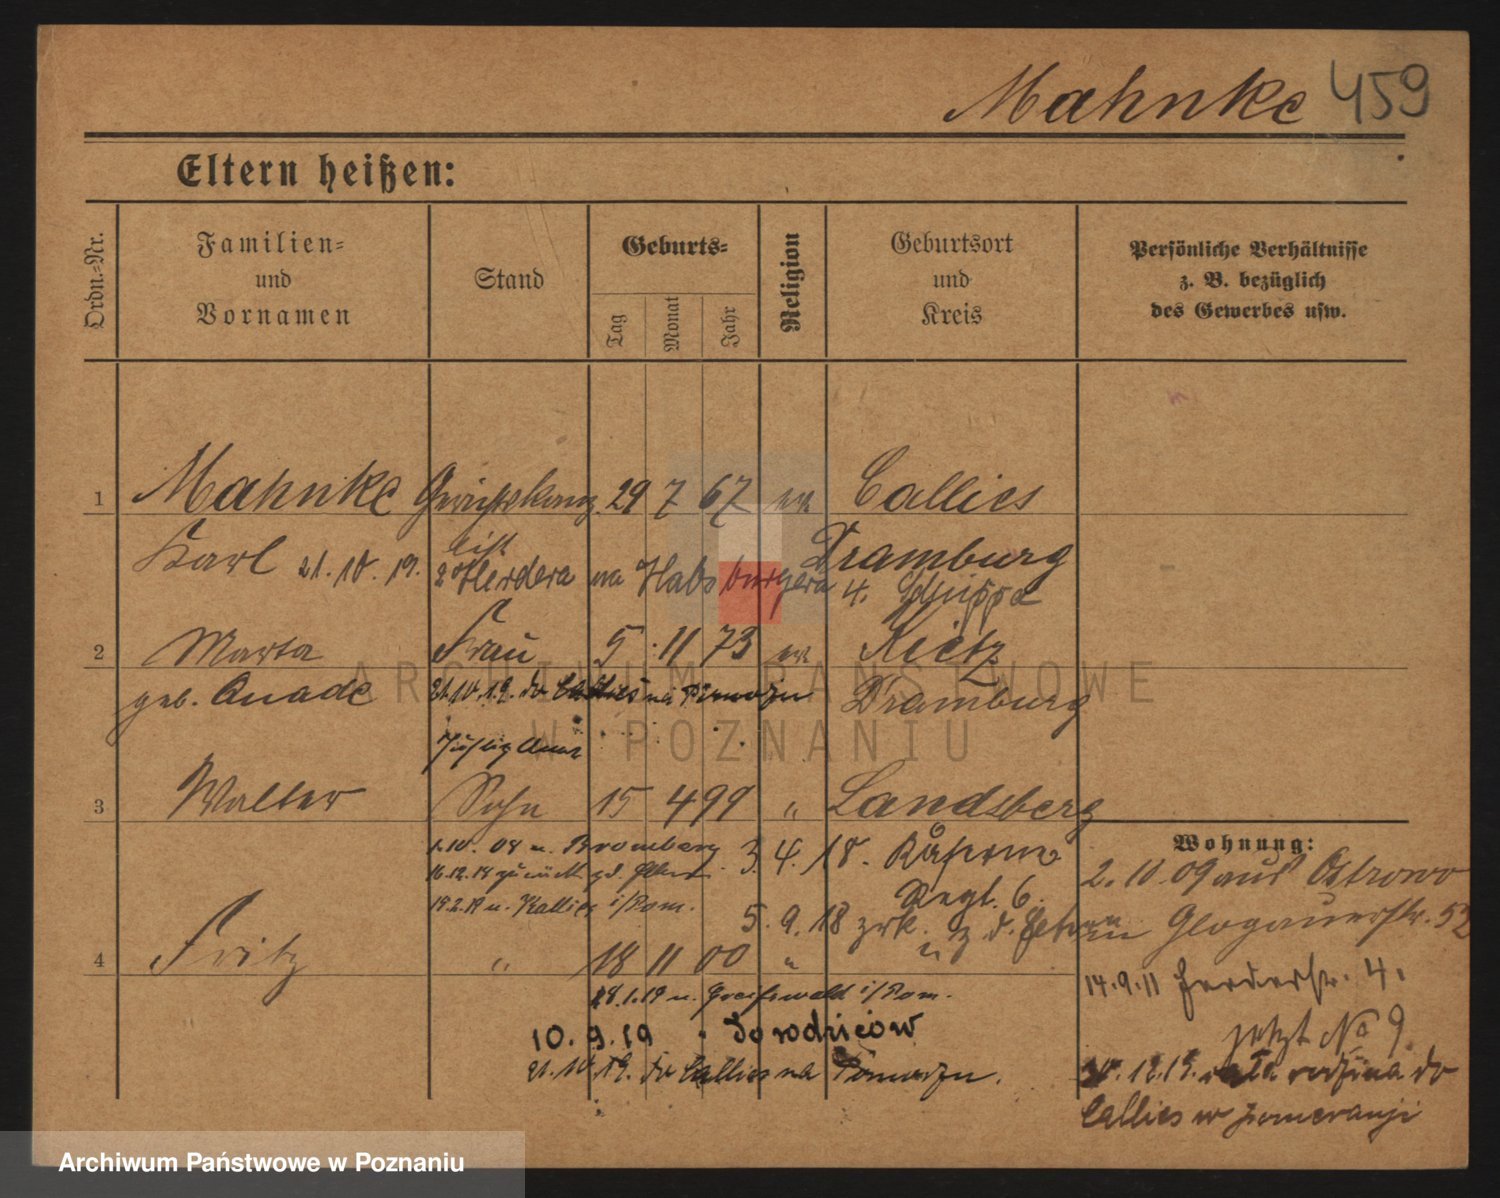 Mahnke 459
Eltern heißen:
Ordn.-Nr.
Familien- und Vornamen
Stand
Geburts-
Tag
Monat
Jahr
Religion
Geburtsort und Kreis
Persönliche Verhältnisse
z. B. bezüglich
des Gewerbes usw.
1 Mahnke 29 7 67 Callies
Karl Dramburg
21.10.19. Herdera na Habsburgera 4.
2 Marta Frau 5 11 73 Kietz
geb. Dramburg
21.10.19. do Callies na
3 Walter Sohn 15 4 99 " Landsberg
1.10.08 n. Bromberg 3.4.18.
16.12.18 zurück
19.2.19 n. Kallies i/Pom.
Regt. 6.
5.9.18 zrk. z. d.
4 Fritz " 18 11 00 "
28.1.19 n. Greifswald i/Pom.
10.9.19 do rodziców
21.10.19. do Callies na
Wohnung:
2.10.09 aus Ostrowo
Glogauerstr. 52
14.9.11 Herderstr. 4.
jetzt No 9.
rodzina do
Callies w
ARCHIWUM PAŃSTWOWE
W POZNANIU
Archiwum Państwowe w Poznaniu